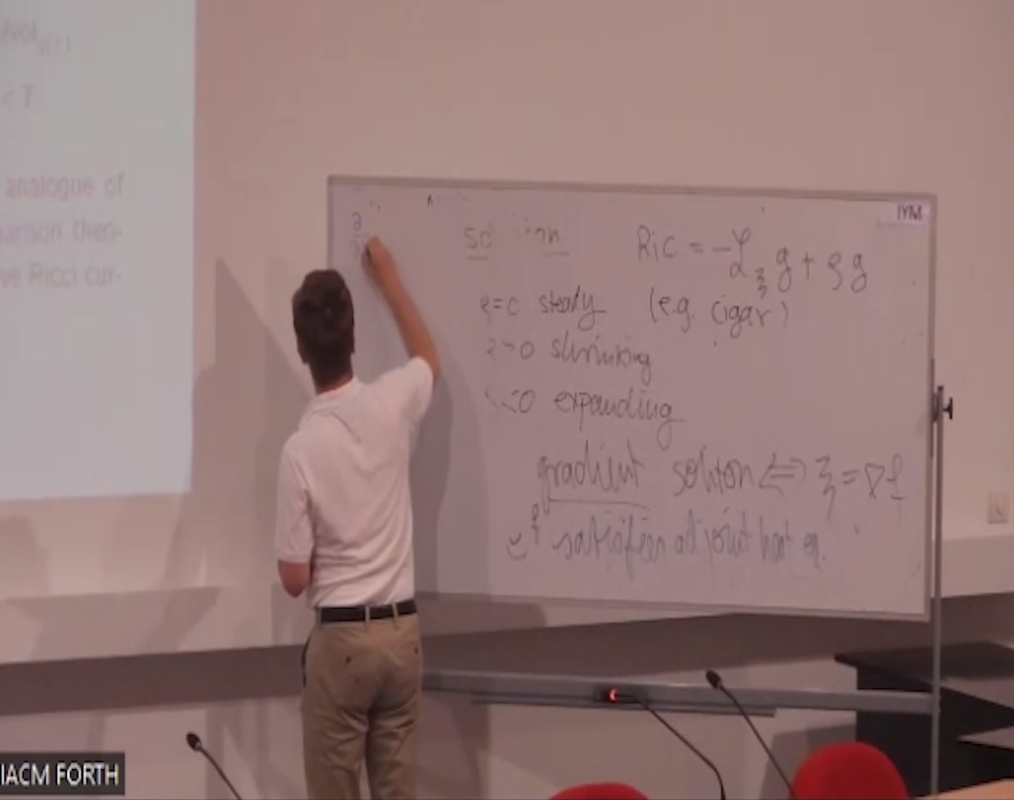 < T
analogue of
arison theo-
ve Ricci cur-
IYM
∂
Ric = -ℒ_ξ g + ρ g
ρ=0 steady (e.g. cigar)
>0 shrinking
<0 expanding
gradient soliton ⇔ ξ = ∇f
e^f satisfies adjoint heat eq.
IACM FORTH